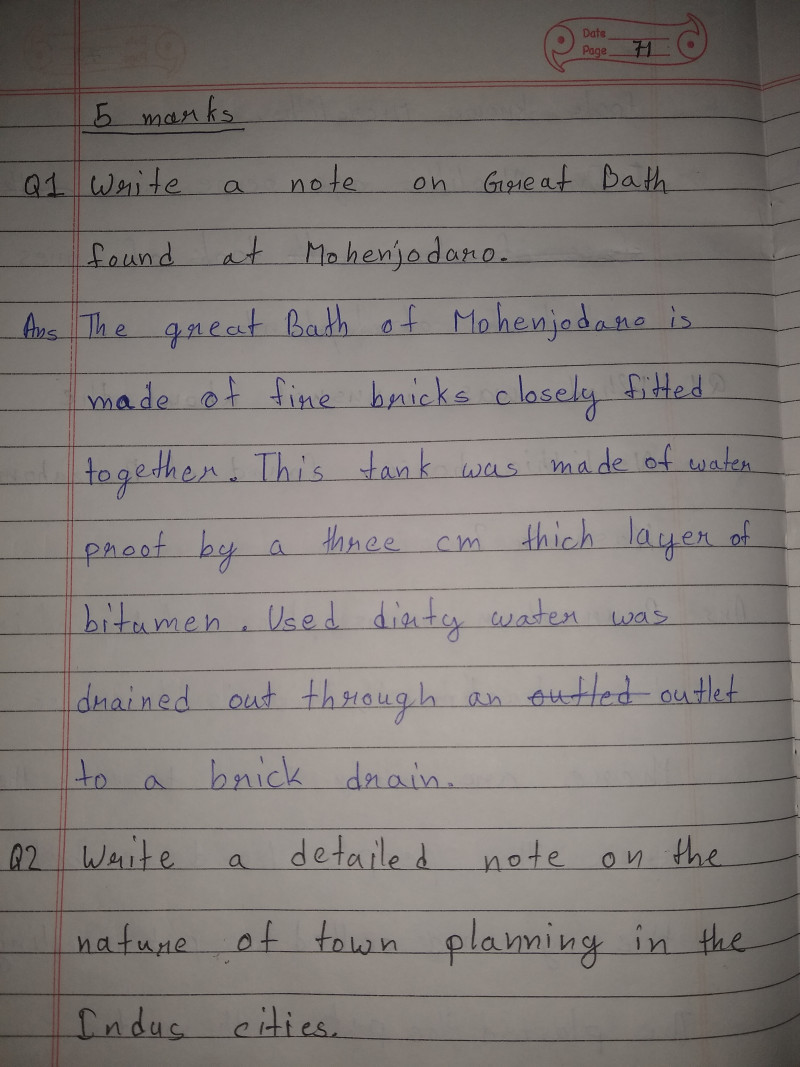 Date
Page 71
5 marks
Q1 Write a note on Great Bath
found at Mohenjodaro.
Ans The great Bath of Mohenjodaro is
made of fine bricks closely fitted
together. This tank was made of water
proof by a three cm thich layer of
bitumen. Used dirty water was
drained out through an outted outlet
to a brick drain.
Q2 Write a detailed note on the
nature of town planning in the
Indus cities.